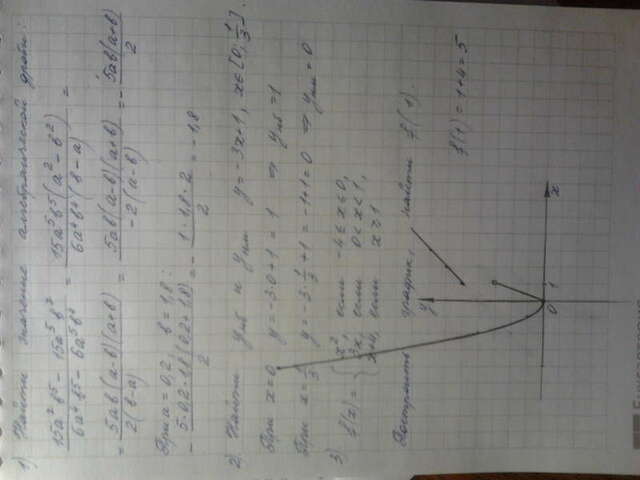 1) Найти значение алгебраической дроби:
(15a⁷b⁵ - 15a⁵b⁷)/(6a⁴b⁵ - 6a⁵b⁴) = 15a⁵b⁵(a² - b²)/(6a⁴b⁴(b - a)) =
= 5ab(a-b)(a+b)/(2(b-a)) = 5ab(a-b)(a+b)/(-2(a-b)) = - 5ab(a+b)/2
При a = 0,2, b = 1,8:
- 5·0,2·1,8(0,2+1,8)/2 = - 1·1,8·2/2 = -1,8
2) Найти yнб и yнм y = -3x+1, x∈[0; 1/3].
При x=0 y = -3·0+1 = 1 ⇒ yнб = 1
При x = 1/3 y = -3·1/3+1 = -1+1 = 0 ⇒ yнм = 0
3) f(x) = { x², если -4≤x≤0,
3x, если 0<x<1,
x+4, если x≥1
Построить график, найти f(1).
f(1) = 1+4 = 5
y
0 1 x